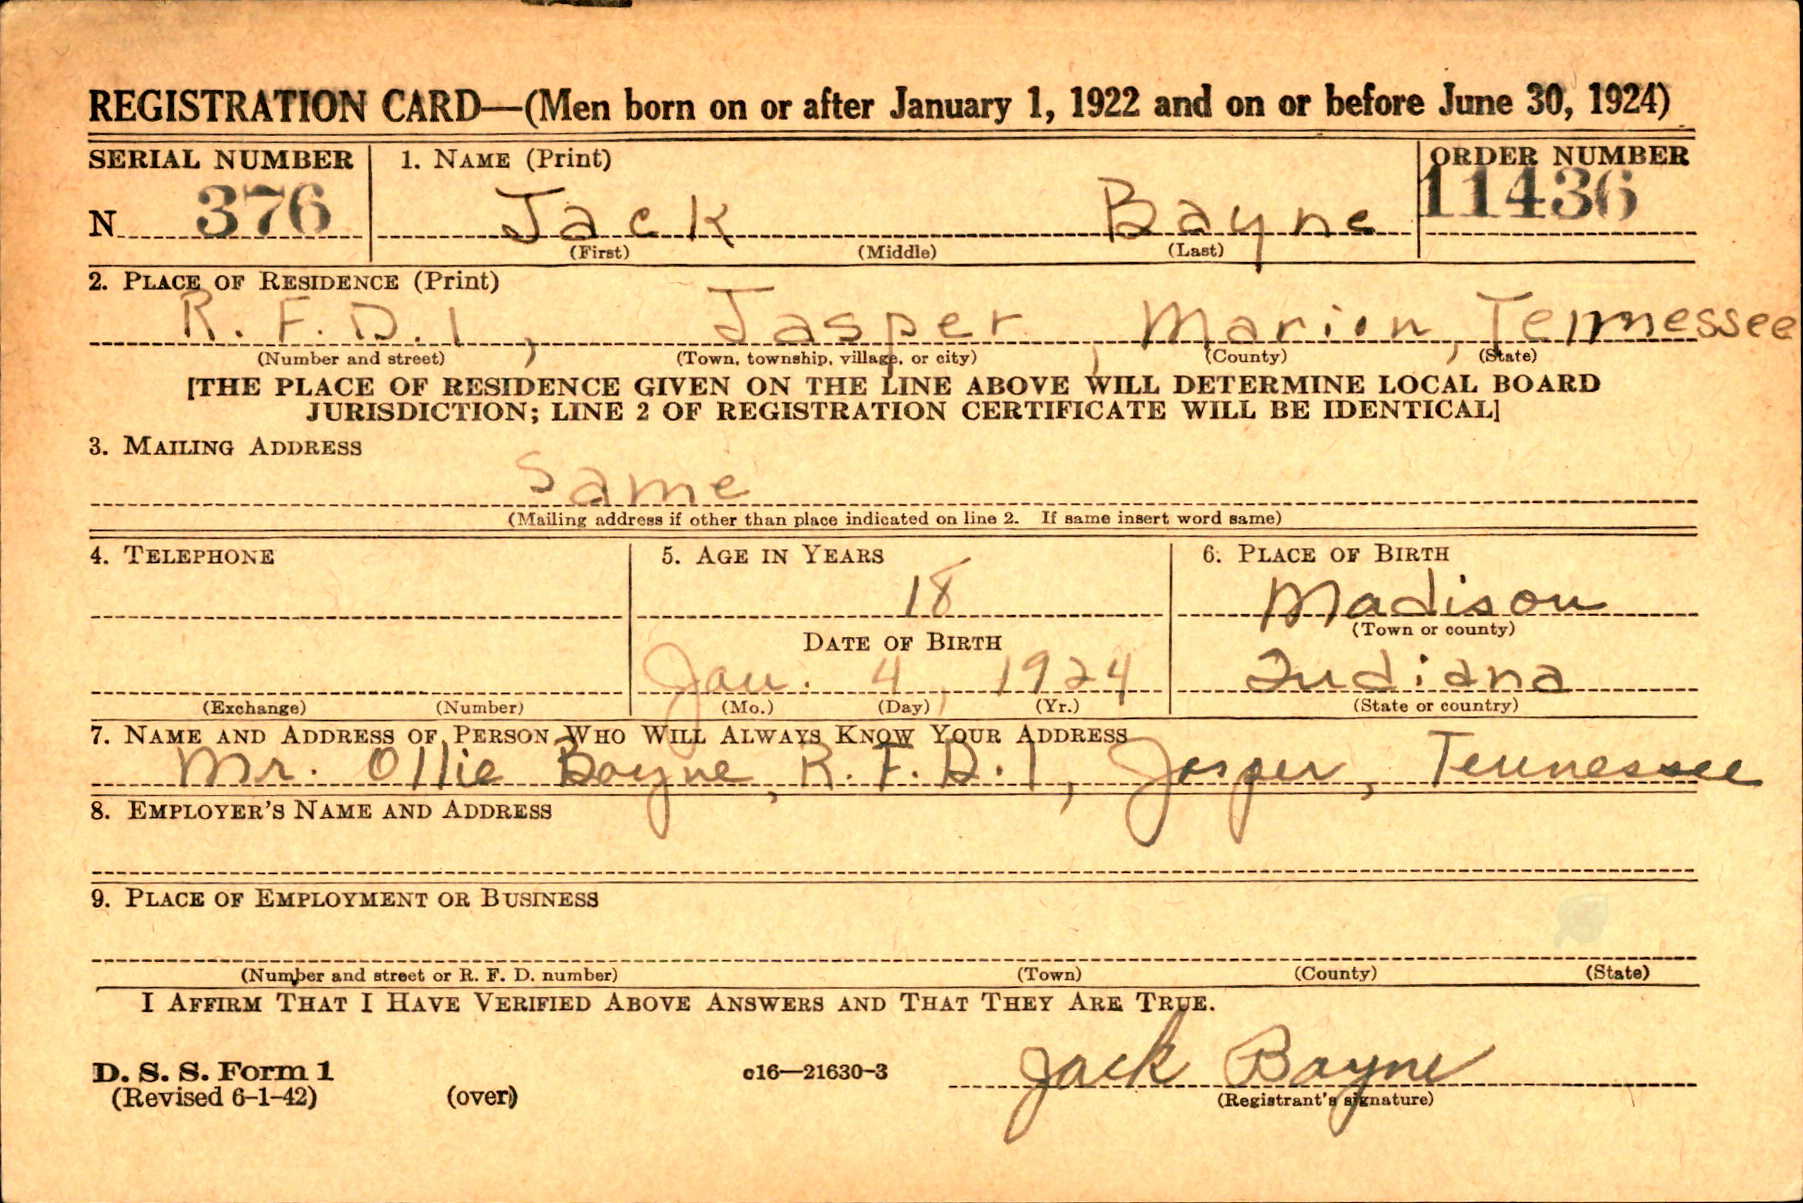 REGISTRATION CARD—(Men born on or after January 1, 1922 and on or before June 30, 1924)
SERIAL NUMBER 1. NAME (Print) ORDER NUMBER
N 376 Jack Bayne 11436
(First) (Middle) (Last)
2. PLACE OF RESIDENCE (Print)
R. F. D. 1, Jasper, Marion, Tennessee
(Number and street) (Town, township, village, or city) (County) (State)
[THE PLACE OF RESIDENCE GIVEN ON THE LINE ABOVE WILL DETERMINE LOCAL BOARD
JURISDICTION; LINE 2 OF REGISTRATION CERTIFICATE WILL BE IDENTICAL]
3. MAILING ADDRESS
Same
(Mailing address if other than place indicated on line 2. If same insert word same)
4. TELEPHONE 5. AGE IN YEARS 6. PLACE OF BIRTH
18 Madison
DATE OF BIRTH (Town or county)
Jan. 4, 1924 Indiana
(Exchange) (Number) (Mo.) (Day) (Yr.) (State or country)
7. NAME AND ADDRESS OF PERSON WHO WILL ALWAYS KNOW YOUR ADDRESS
Mr. Ollie Bayne, R. F. D. 1, Jasper, Tennessee
8. EMPLOYER'S NAME AND ADDRESS
9. PLACE OF EMPLOYMENT OR BUSINESS
(Number and street or R. F. D. number) (Town) (County) (State)
I AFFIRM THAT I HAVE VERIFIED ABOVE ANSWERS AND THAT THEY ARE TRUE.
D. S. S. Form 1 c16—21630-3 Jack Bayne
(Revised 6-1-42) (over) (Registrant's signature)